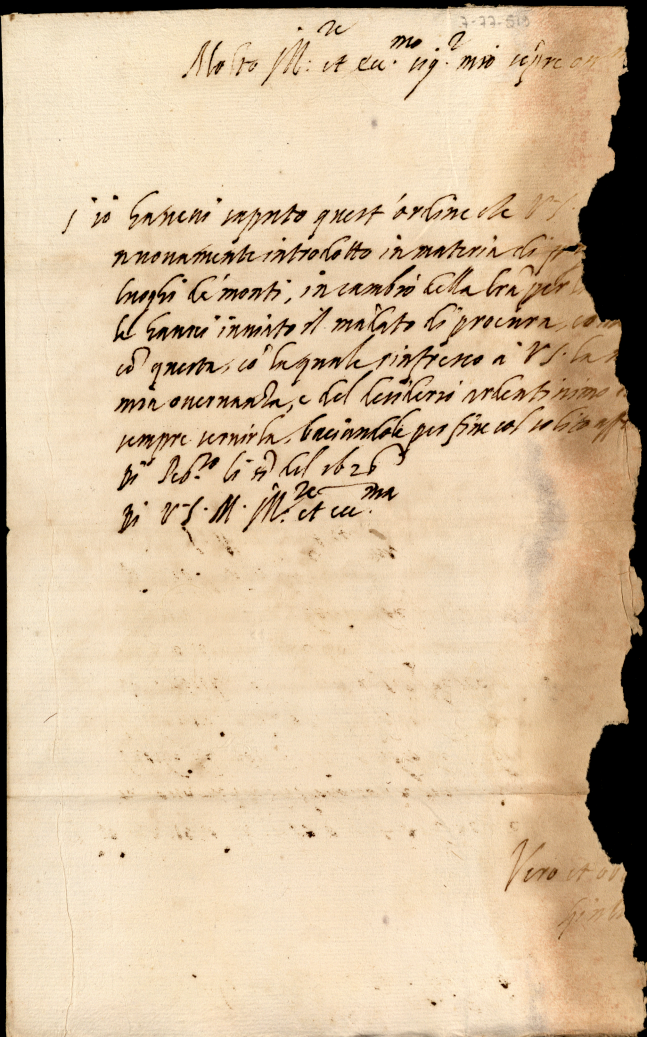 7-77-
Molto Ill.re et ecc.mo sig.r mio sempre
S'io havessi saputo quest'ordine che V.S.
nuovamente introdotto in materia di
luoghi de' monti, in cambio della l'ra per
le havrei inviato il ma'dato di procura,
co' questa, co' la quale rinfresco à V.S. la
mia osservanza, e del desiderio ardentissimo
sempre servirla, baciandole per fine col solito aff
Di li del 1626
Di V.S. M. Ill.re et ecc.ma
Vero et